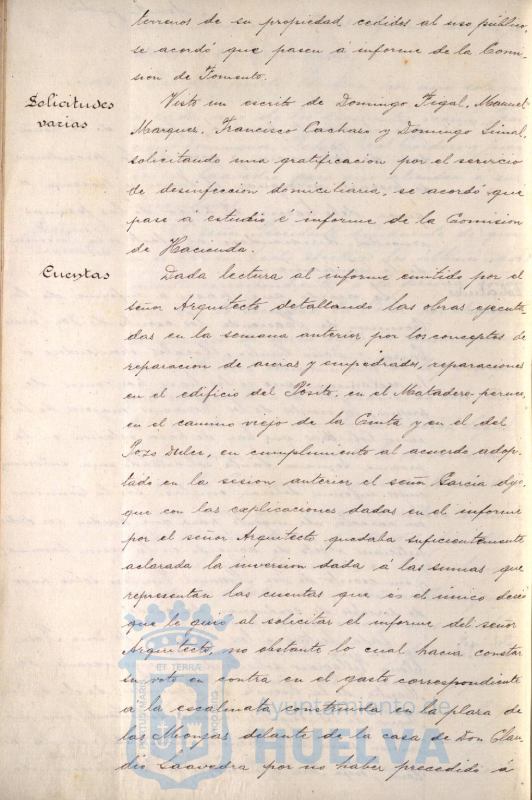 terrenos de su propiedad cedidos al uso público,
se acordó que pasen á informe de la Comi-
sion de Fomento.
Solicitudes
varias
Visto un escrito de Domingo Figal, Manuel
Marques, Francisco Cachazo y Domingo
solicitando una gratificación por el servicio
de desinfeccion domiciliaria, se acordó que
pase á estudio é informe de la Comision
de Hacienda.
Cuentas
Dada lectura al informe emitido por el
señor Arquitecto detallando las obras ejecuta
das en la semana anterior por los conceptos de
reparacion de aceras y empedrados, reparaciones
en el edificio del Pósito, en el Matadero
en el camino viejo de la Cinta y en el del
Pozo Dulce, en cumplimiento al acuerdo adop-
tado en la sesion anterior el señor García dijo
que con las explicaciones dadas en el informe
por el señor Arquitecto quedaba suficientemente
aclarada la inversion dada á las sumas que
representan las cuentas que es el único deseo
que le guió al solicitar el informe del señor
Arquitecto, no obstante lo cual hacia constar
su voto en contra en el gasto correspondiente
á la escalinata construida en la plaza de
las Monjas delante de la casa de Don Clau
dio Saavedra por no haber precedido á
ET TERRÆ
Ayuntamiento de
HUELVA